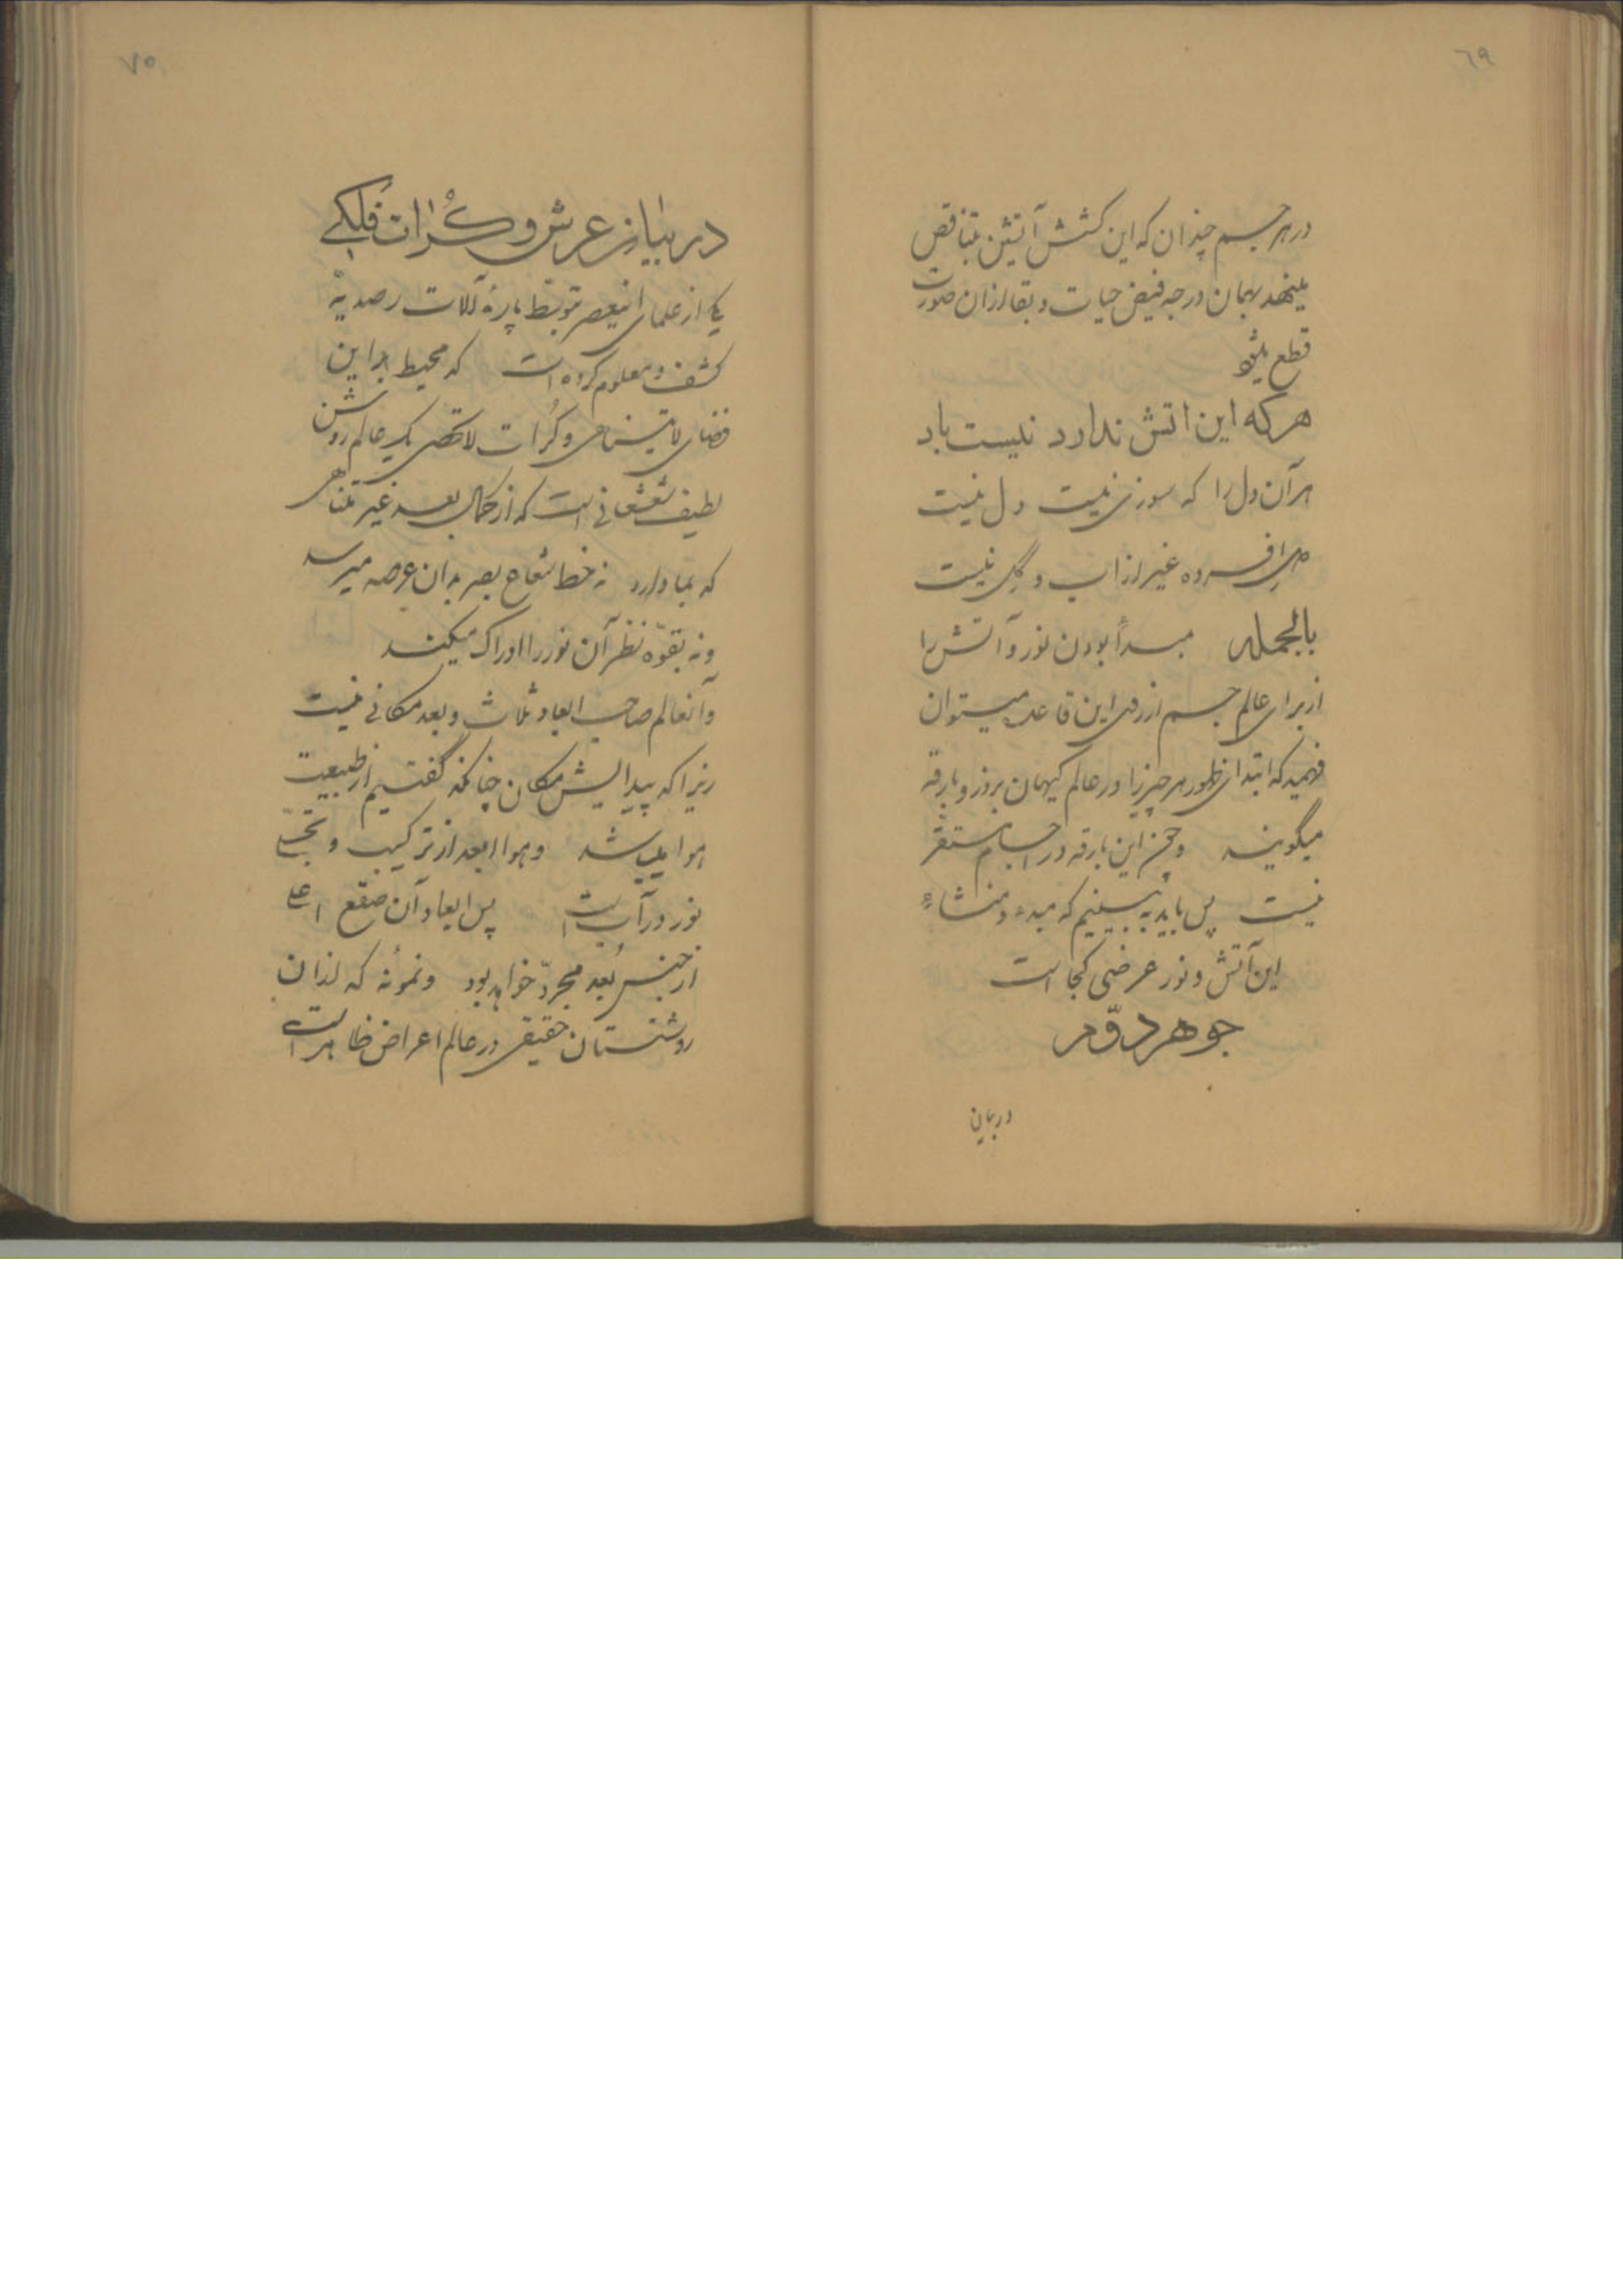 ٦٩
در هر جسم چندان که این کشش آتشین تناقص
مینهد بهمان درجه فیض حیات و بقا از آن صورت
قطع میشود
هر که این اتش ندارد نیست باد
هر آن دل را که سوزی نیست دل نیست
دل افسرده غیر از آب و گل نیست
بالجمله مبدأ بودن نور و آتش را
از برای عالم جسم از روی این قاعده میتوان
فهمید که ابتدای ظهور هر چیز را در عالم کیهان بروز و بارقه
میگویند و چون این بارقه در اجسام مستقر
نیست پس باید به بینیم که مبدء و منشاء
این آتش و نور عرضی کجا است
جوهر دوّم
در بیان
٧٠
در بیان عرش و کُرات فلکی
یکی از علمای اینعصر بتوسط پارهٔ آلات رصدیهٔ
کشف و معلوم کرده است که محیط بر این
فضای لا یتناهی و کُرات لا تحصی یک عالم روشن
لطیف شعشعانی است که از کمال بعد غیر متناهی
که بما دارد نه خط شعاع بصر بدان عرصه میرسد
و نه بقوّه نظر آن نور را ادراک میکند
و آنعالم صاحب ابعاد ثلاث و بعد مکانی نیست
زیرا که پیدایش مکان چنانکه گفتیم از طبیعت
هوا میباشد و هوا بعد از ترکیب و تجلّی
نور در آب است پس ابعاد آن صقع اعلی
از جنس بُعد مجرّد خواهد بود و نمونهٔ که از آن
روشنستان حقیقی در عالم اعراض ظاهر است